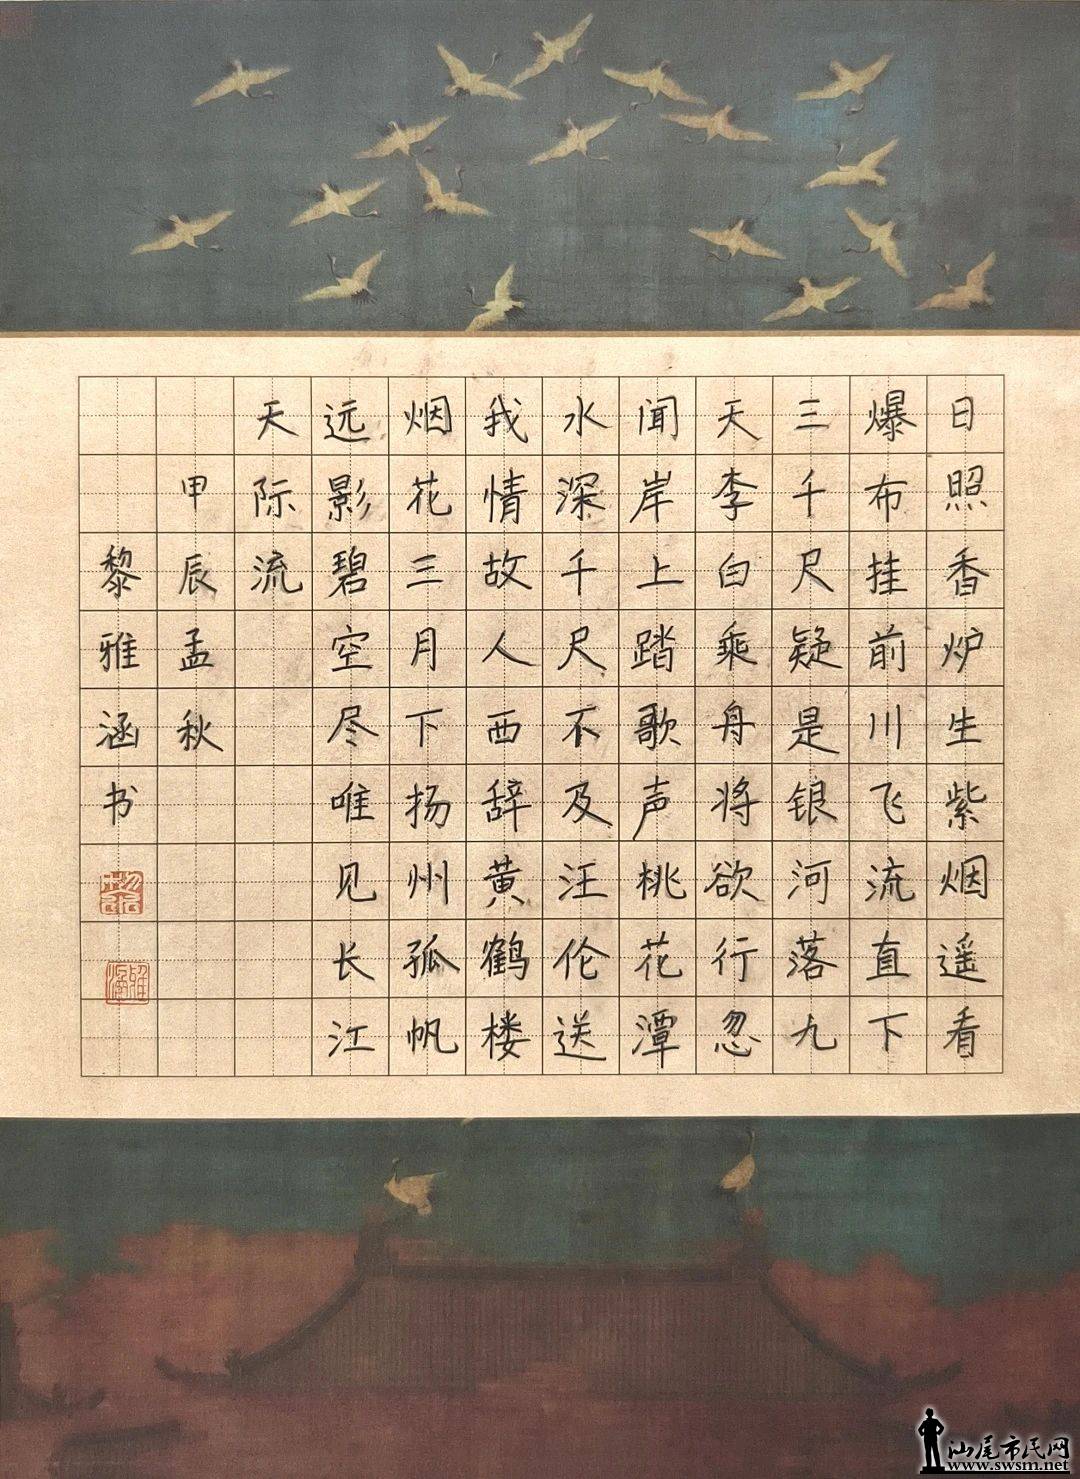 日照香炉生紫烟遥看
爆布挂前川飞流直下
三千尺疑是银河落九
天李白乘舟将欲行忽
闻岸上踏歌声桃花潭
水深千尺不及汪伦送
我情故人西辞黄鹤楼
烟花三月下扬州孤帆
远影碧空尽唯见长江
天际流
甲辰孟秋
黎雅涵书
雅涵
汕尾市民网
www.swsm.net